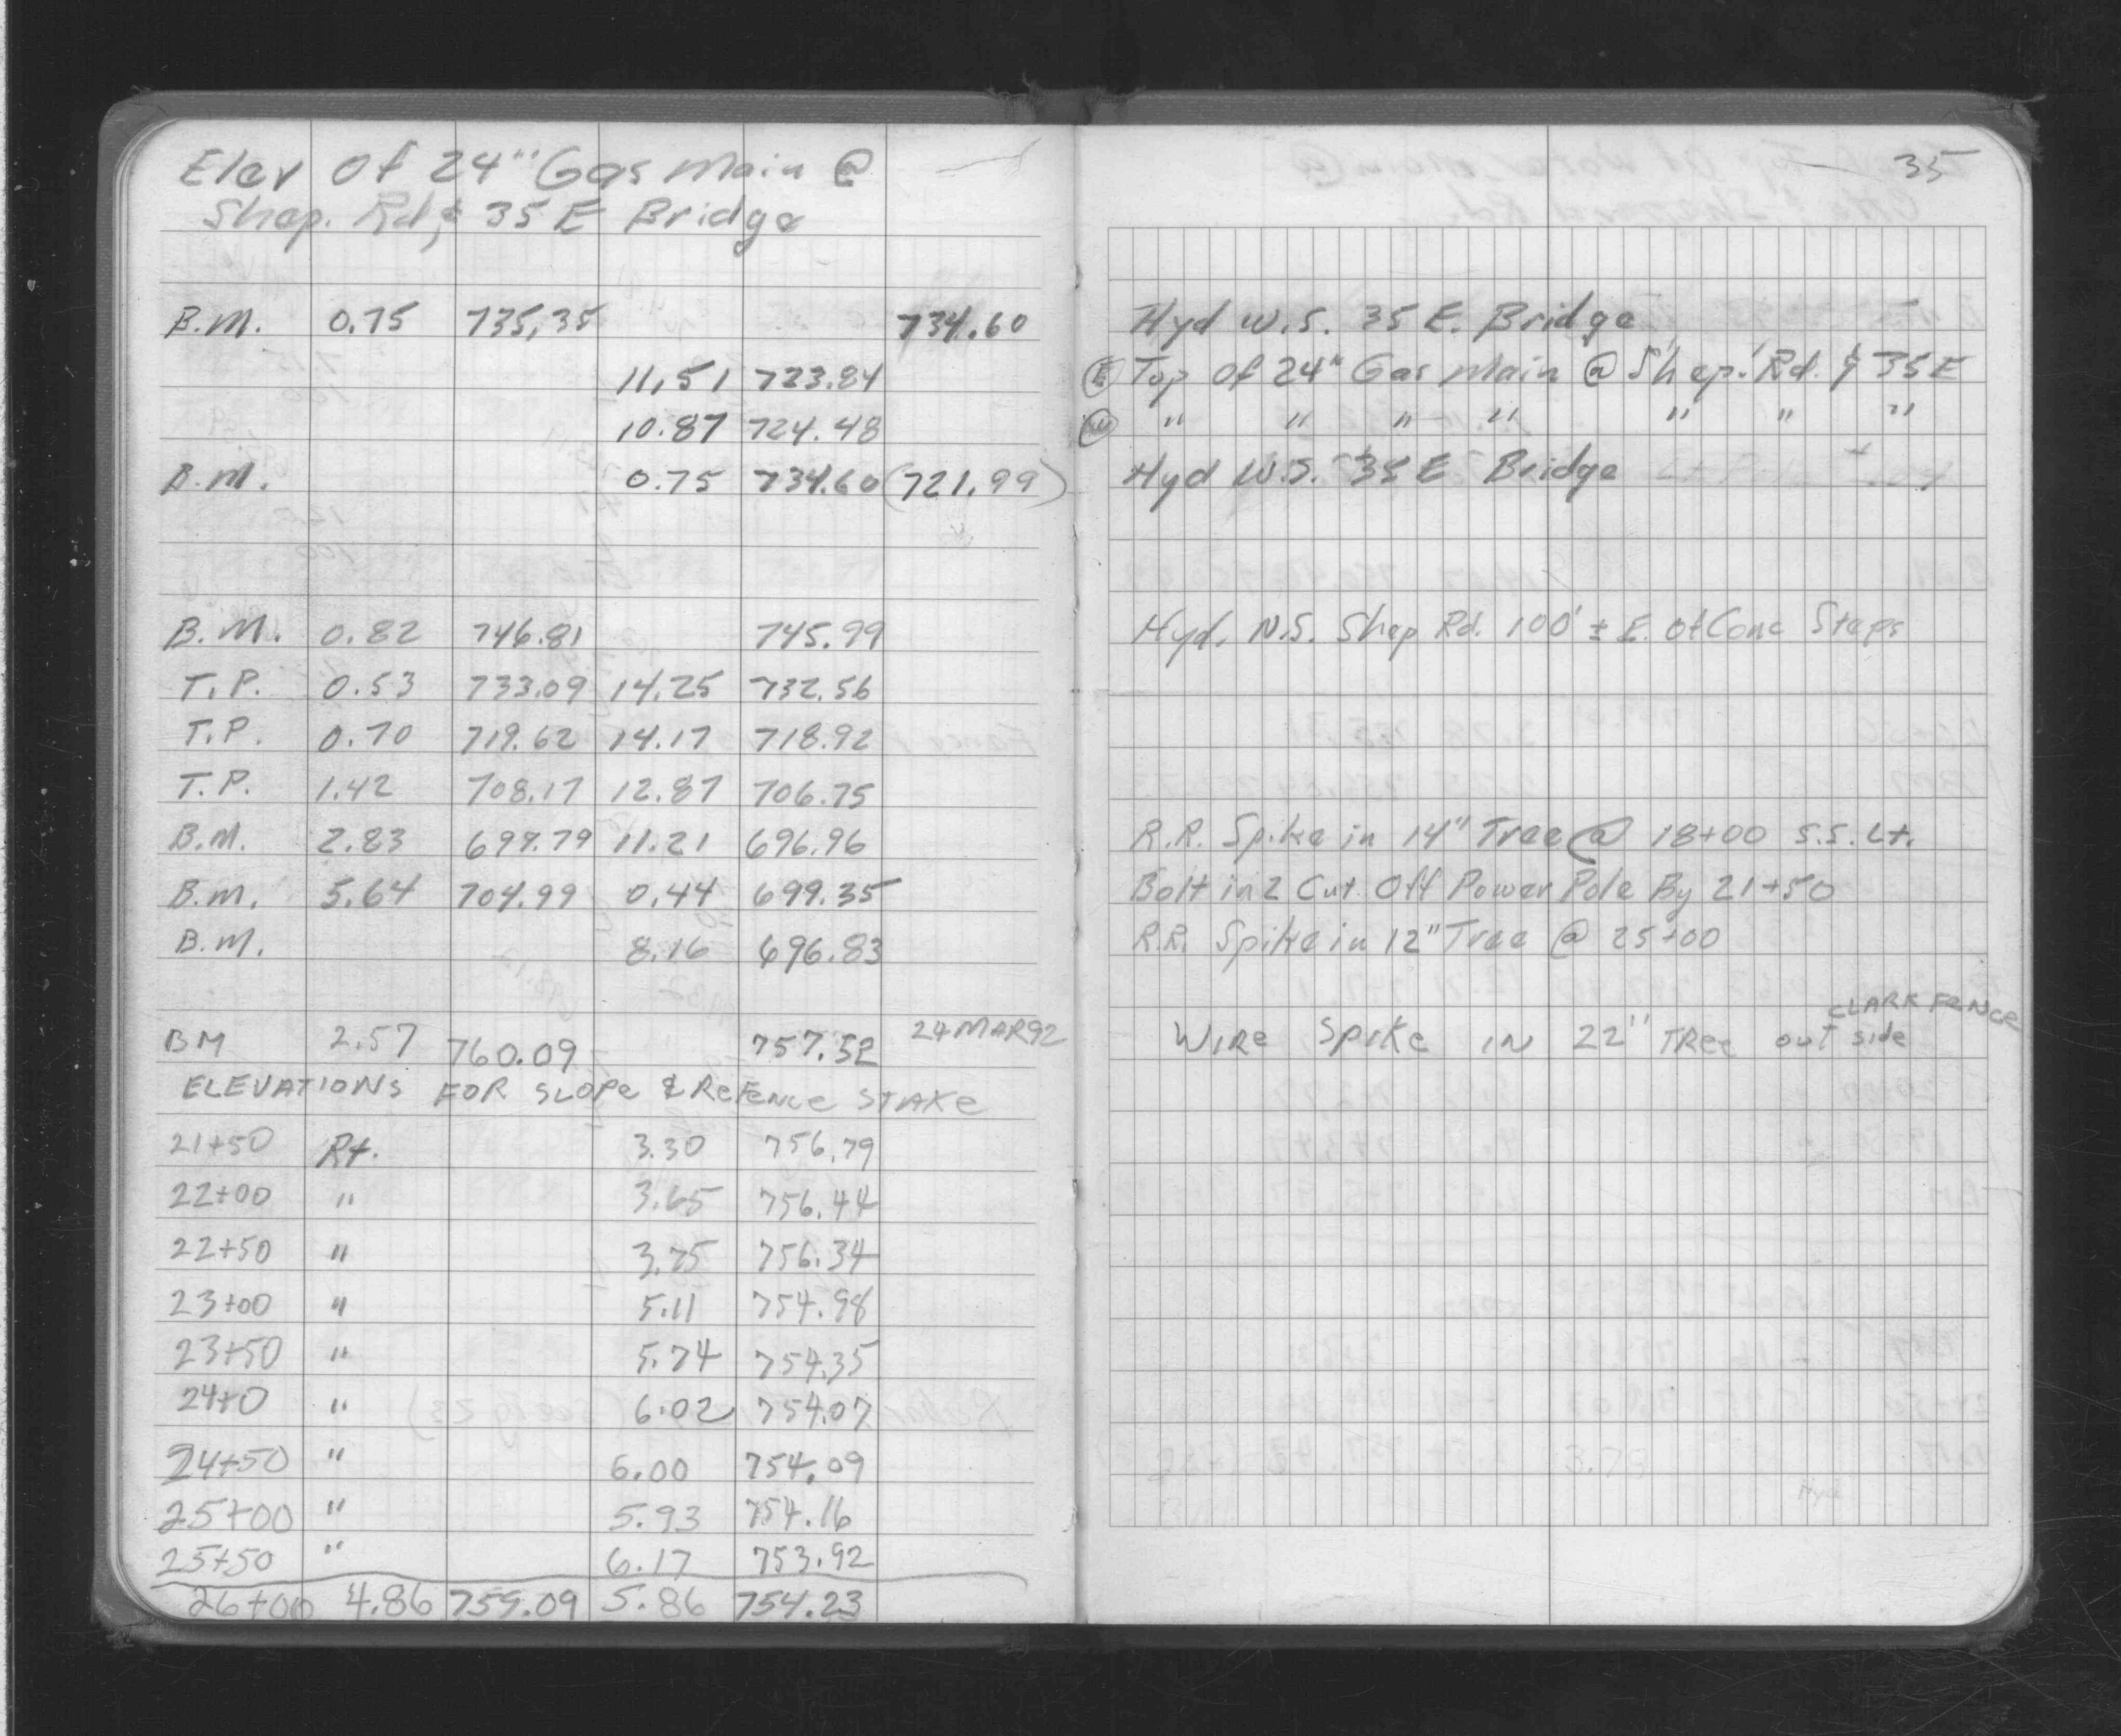 Elev Of 24" Gas Main @
Shep. Rd. & 35 E Bridge
B.M. 0.75 735.35 734.60
11.51 723.84
10.87 724.48
B.M. 0.75 734.60 (721.99)
B.M. 0.82 746.81 745.99
T.P. 0.53 733.09 14.25 732.56
T.P. 0.70 719.62 14.17 718.92
T.P. 1.42 708.17 12.87 706.75
B.M. 2.83 699.79 11.21 696.96
B.M. 5.64 704.99 0.44 699.35
B.M. 8.16 696.83
BM 2.57 760.09 757.52 24 MAR 92
ELEVATIONS FOR SLOPe & ReFeNce STAKe
21+50 Rt. 3.30 756.79
22+00 " 3.65 756.44
22+50 " 3.75 756.34
23+00 " 5.11 754.98
23+50 " 5.74 754.35
24+0 " 6.02 754.07
24+50 " 6.00 754.09
25+00 " 5.93 754.16
25+50 " 6.17 753.92
26+00 4.86 759.09 5.86 754.23
35
Hyd W.S. 35 E. Bridge
(E) Top Of 24" Gas Main @ Shep. Rd. & 35 E
(W) " " " " " " "
Hyd W.S. 35 E Bridge
Hyd. N.S. Shep Rd. 100' ± E. Of Conc Steps
R.R. Spike in 14" Tree @ 18+00 S.S. Lt.
Bolt in 2 Cut Off Power Pole By 21+50
R.R. Spike in 12" Tree @ 25+00
CLARK FeNce
WIRe SPIKe IN 22" TRee out side